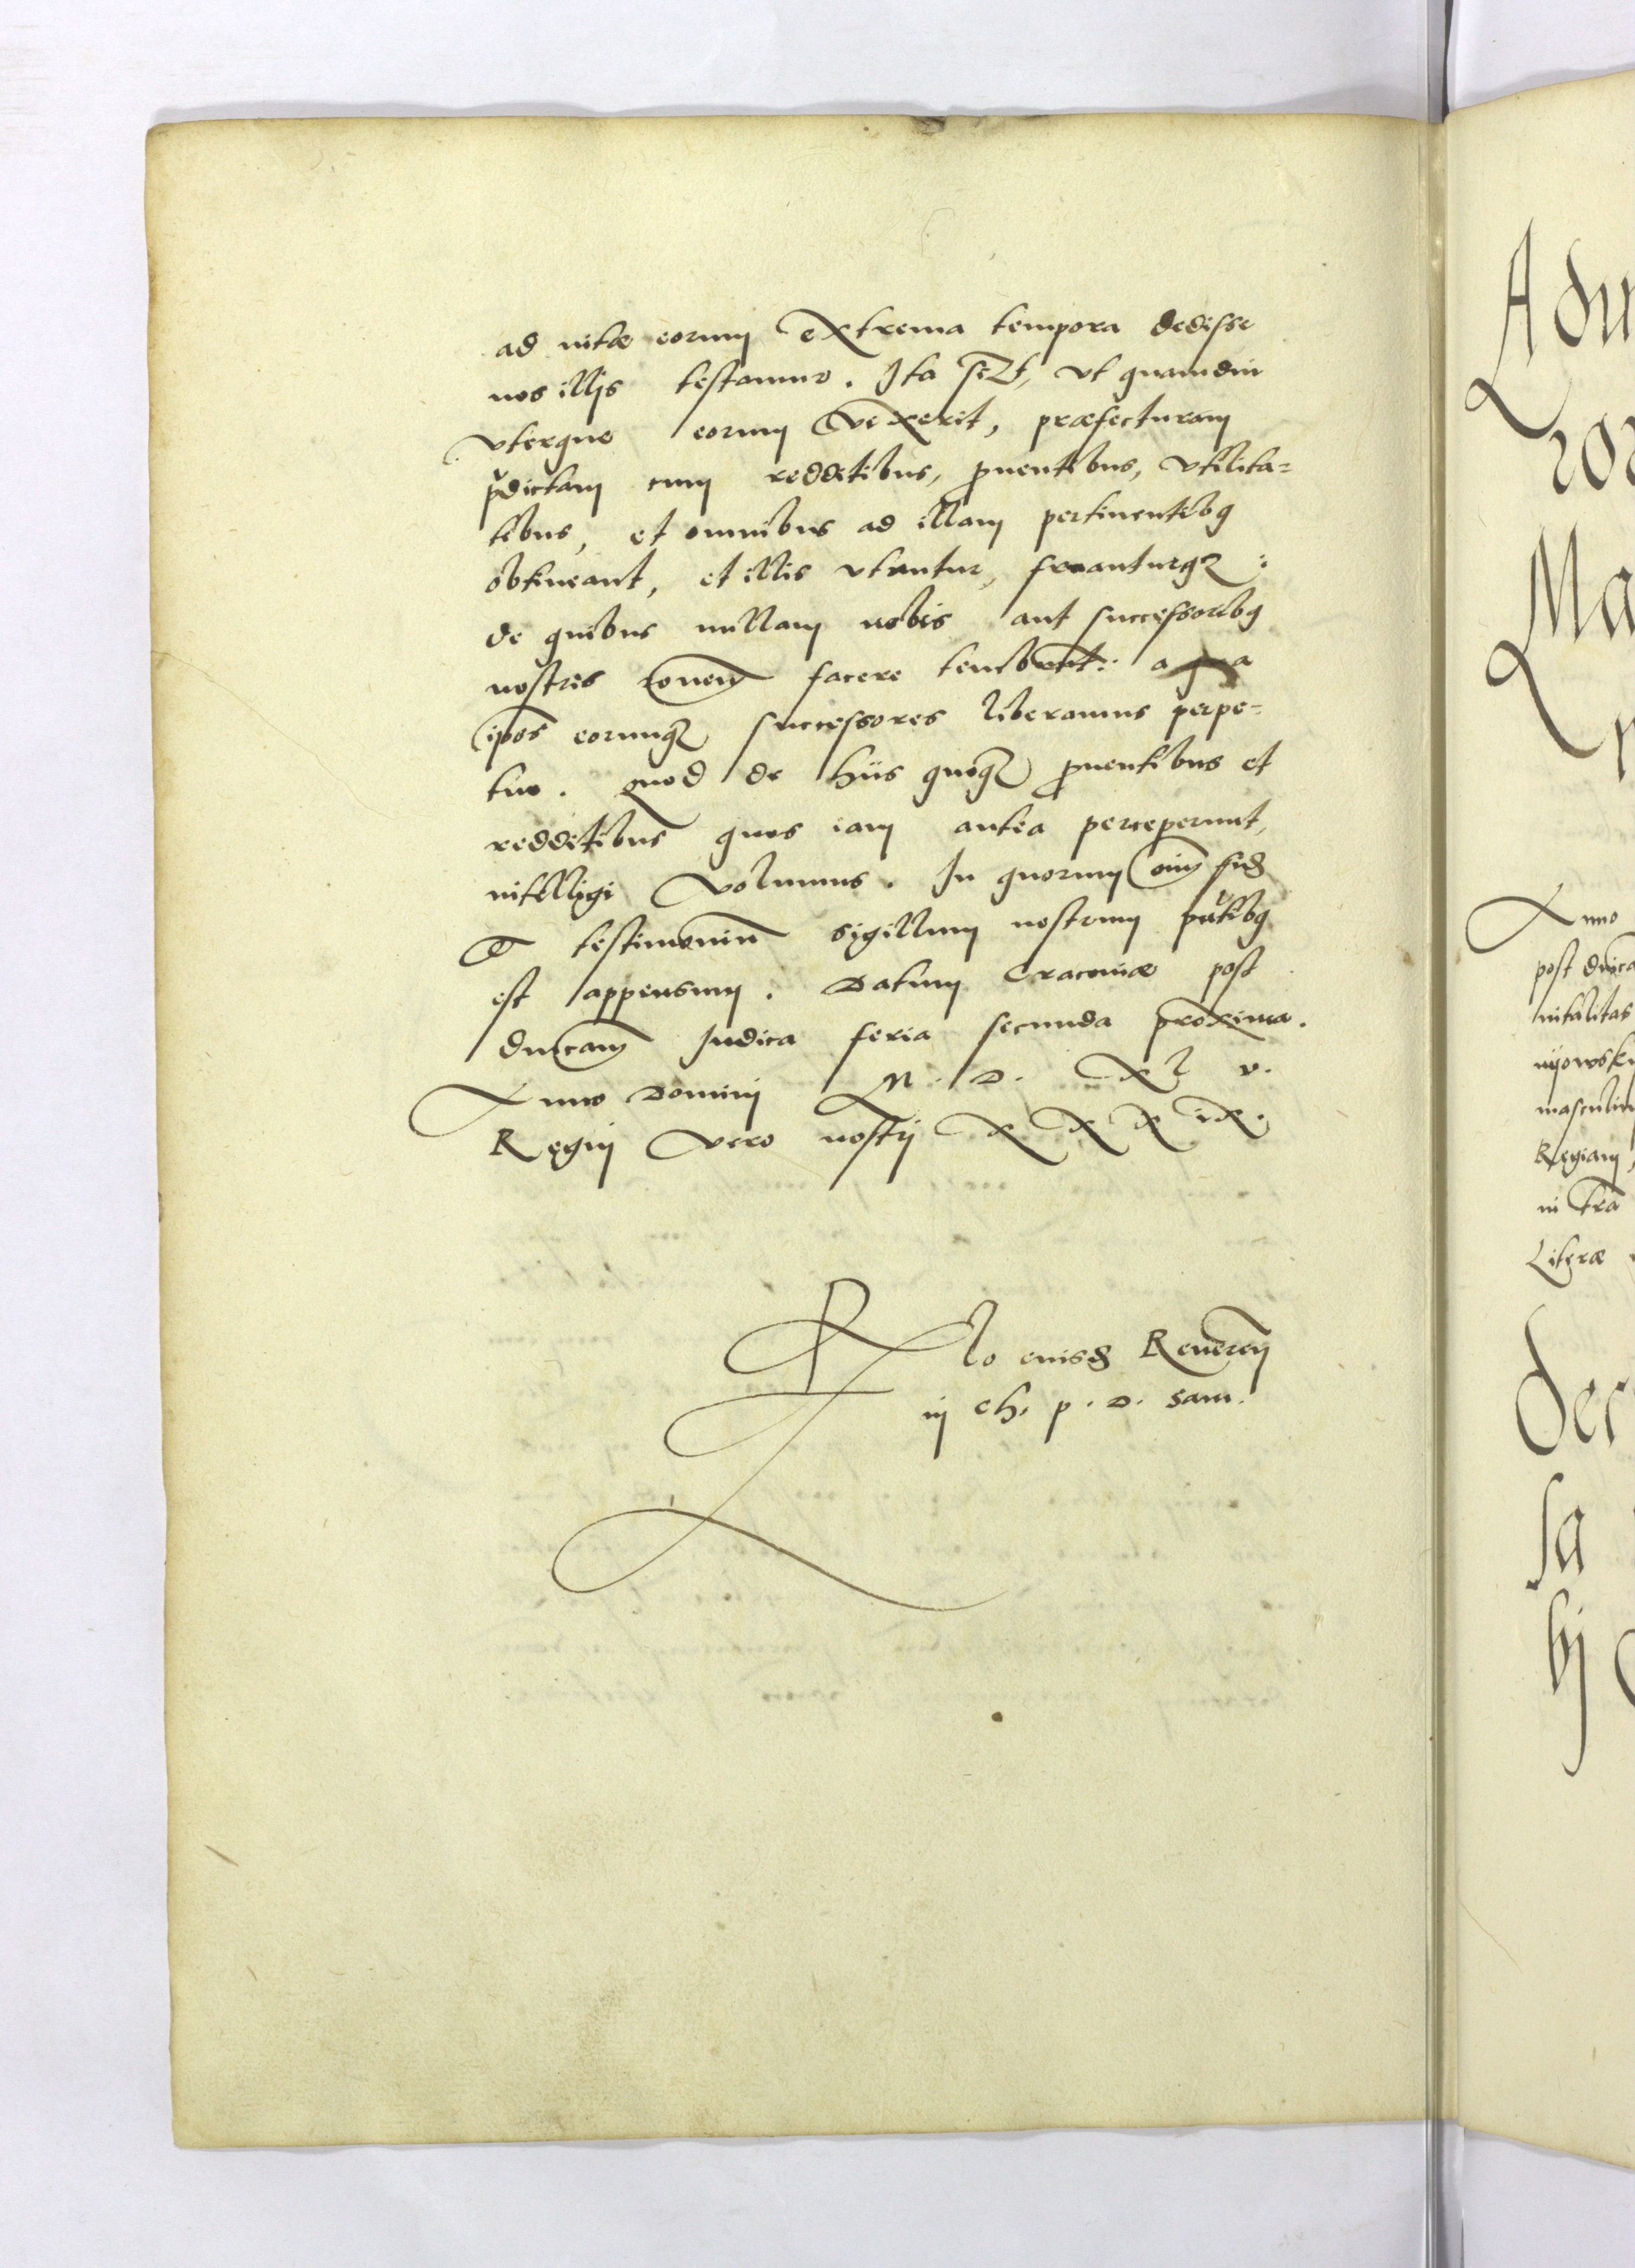 ad uitæ eorum extrema tempora dedisse
nos illis testamur. Ita scilt, vt quamdiu
vterque eorum vixerit, præfecturam
p̃dictam cum redditibus, puentibus, vtilita=
tibus, et omnibus ad illam pertinentibq
obtineant, et illis vtantur, fruanturqꝫ :
de quibus nullam nobis aut successoribq
nostris rõnem facere tenebunt: a qua
ip̃os eorumqꝫ successores liberamus perpe=
tuo. Quod de hiis quoqꝫ puentibus et
redditibus quos iam antea perceperunt,
intelligi volumus. In quorum oim̃ fid
& testimoniũ sigillum nostrum pñtibq
est appensum. Datum Cracouiæ post
dnicam Iudica feria secunda proxima.
Anno Domini M. D. XL v.
Regni vero nostri X X X IX.
Relo eiusd Reuereñ
in Ch. p. D. Sam.
Adu
ror
Ma
Anno
post dnica
nitalitas
nijowski
masculin
Regiam,
in tra
Literæ
Der
sa
bi